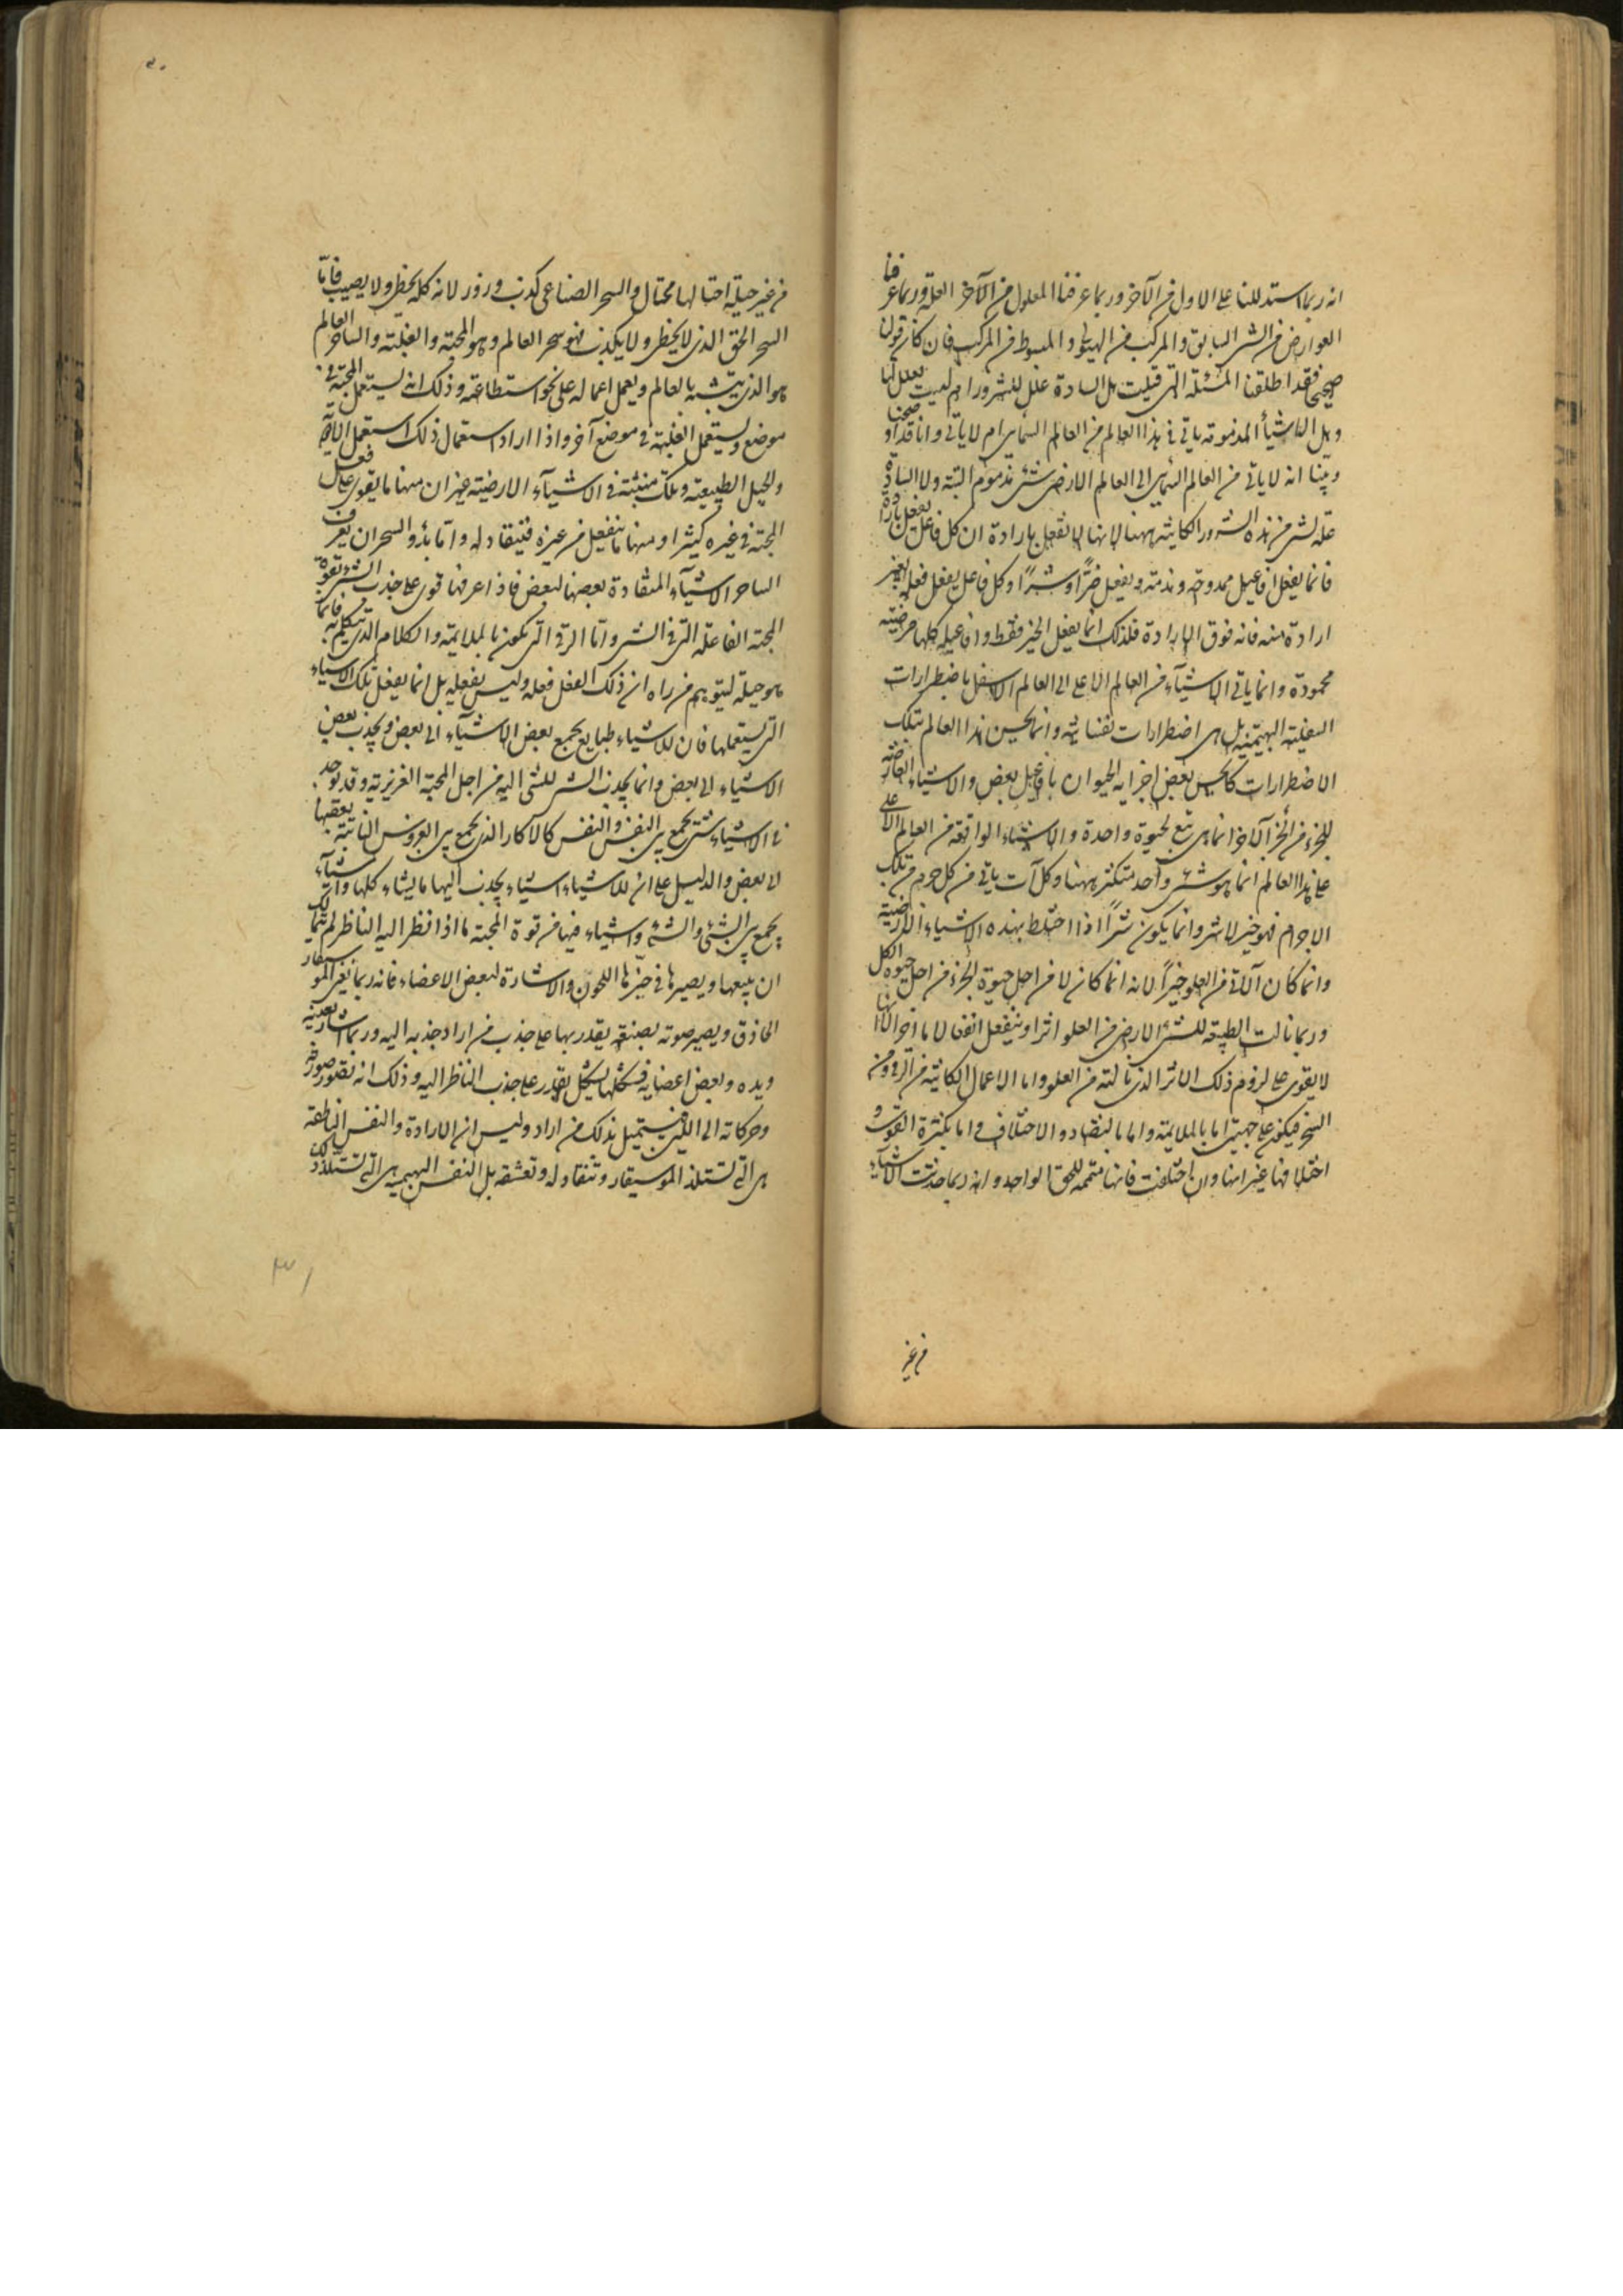 انه ربما استدللنا على الاول من الآخر وربما عرفنا المعلول من الآخر العلة وربما عرفنا
العوارض من الشئ السابق والمركب من المبسوط والمبسوط من المركب فان كان قولنا
صحيحا فقد اطلقنا المسئلة التى قيلت هل السادة علل للشرور ام ليست بعلل لها
وهل الاشياء المذمومة ياتى فى هذا العالم من العالم السمائى ام لا ياتى وانا قد اوضحنا
وبينا انه لا ياتى من العالم السمائى الى العالم الارضى شئ مذموم البتة ولا السادة
علة لشر من هذه الشرور الكائنة ههنا لانها لا تفعل بارادة ان كل فاعل يفعل بارادة
فانما يفعل افاعيل ممدوحة ومذمة ويفعل خيرا او شرا وكل فاعل يفعل فعله بغير
ارادة منه فانه فوق الارادة فلذلك انما يفعل الخير فقط وافاعيله كلها مرضية
محمودة وانما ياتى الاشياء من العالم الاعلى الى العالم الاسفل باضطرارات
السفلية البهيمية بل هى اضطرارات نفسانية وانما يحس هذا العالم بتلك
الاضطرارات كما يحس بعض اجزاء الحيوان بافاعيل بعض والاشياء العارضة
للجزء من الجزء الآخر انما هى تبع لحيوة واحدة والاشياء الواقعة من العالم الاعلى
على هذا العالم انما هو شئ واحد متكثر ههنا وكل آت ياتى من كل جرم من تلك
الاجرام فهو خير لا شر وانما يكون شرا اذا اختلط بهذه الاشياء الارضية
وانما كان الآتى من العلو خيرا لانه انما كان لا من اجل حيوة الجزء من اجل حيوة الكل
وربما نالت الطبيعة للشئ الارضى من العلو اثرا وينفعل انفعالا ما آخر الا انها
لا يقوى على لزوم ذلك الاثر الذى نالته من العلو واما الاعمال الكائنة من الرقى ومن
السحر فيكون على جهتين اما بالملايمة واما بالتضاد والاختلاف واما بكثرة القوى و
اختلافها غير انها وان اختلفت فانها متممة للحق الواحد وانه ربما حدثت الاشياء
من غير
من غير حيلة احتالها محتال والسحر الصناعى كذب وزور لانه كله يخطى ولا يصيب فاما
السحر الحق الذى لا يخطى ولا يكذب فهو سحر العالم وهو المحبة والغلبة والساحر العالم
هو الذى يتشبه بالعالم ويعمل اعماله على نحو استطاعته وذلك انه يستعمل المحبة فى
موضع ويستعمل الغلبة فى موضع آخر واذا اراد استعمال ذلك استعمل الادوية
والحيل الطبيعية وتلك منبثة فى الاشياء الارضية غير ان منها ما يقوى على فعل
المحبة فى غيره كثيرا ومنها ما ينفعل من غيره فينقاد له وانما بدو السحر ان يعرف
الساحر الاشياء المنقادة بعضها لبعض فاذا عرفها قوى على جذب الشئ بقوة
المحبة الفاعلة التى فى الشئ واما الرقى التى تكون بالملايمة والكلام الذى يتكلم به فانما
هو حيلة ليتوهم من راه ان ذلك الفعل فعله وليس بفعله بل انما يفعل تلك الاشياء
التى يستعملها فان للاشياء طبايع يجمع بعض الاشياء الى بعض ويجذب بعض
الاشياء الى بعض وانما يجذب الشئ للشئ اليه من اجل المحبة الغريزية وقد توجد
فى الاشياء شئ يجمع بين النفس والنفس كالاكار الذى يجمع بين الغروس النائية بعضها
الى بعض والدليل على ان للاشياء اشياء يجذب اليها ما يشاء كلها واشياء
يجمع بين الشئ والشئ واشياء فيها من قوة المحبة ما اذا نظر اليه الناظر لم يتمالك
ان يتبعها ويصيرها فى حيزها اللحون والاشارة لبعض الاعضاء فانه ربما يغنى الموسيقار
الحاذق ويصير صوته بصنعة يقدر بها على جذب من اراد جذبه اليه وربما اشار بعينه
ويده وبعض اعضايه فيشكلها بشكل يقدر على جذب الناظر اليه وذلك انه يصور صوته
وحركاته الى اللين فيستميل بذلك من اراد وليس ان الارادة والنفس الناطقة
هى التى تستلذ الموسيقار وتنقاد له وتعشقه بل النفس البهيمية هى التى تستلذ ذلك